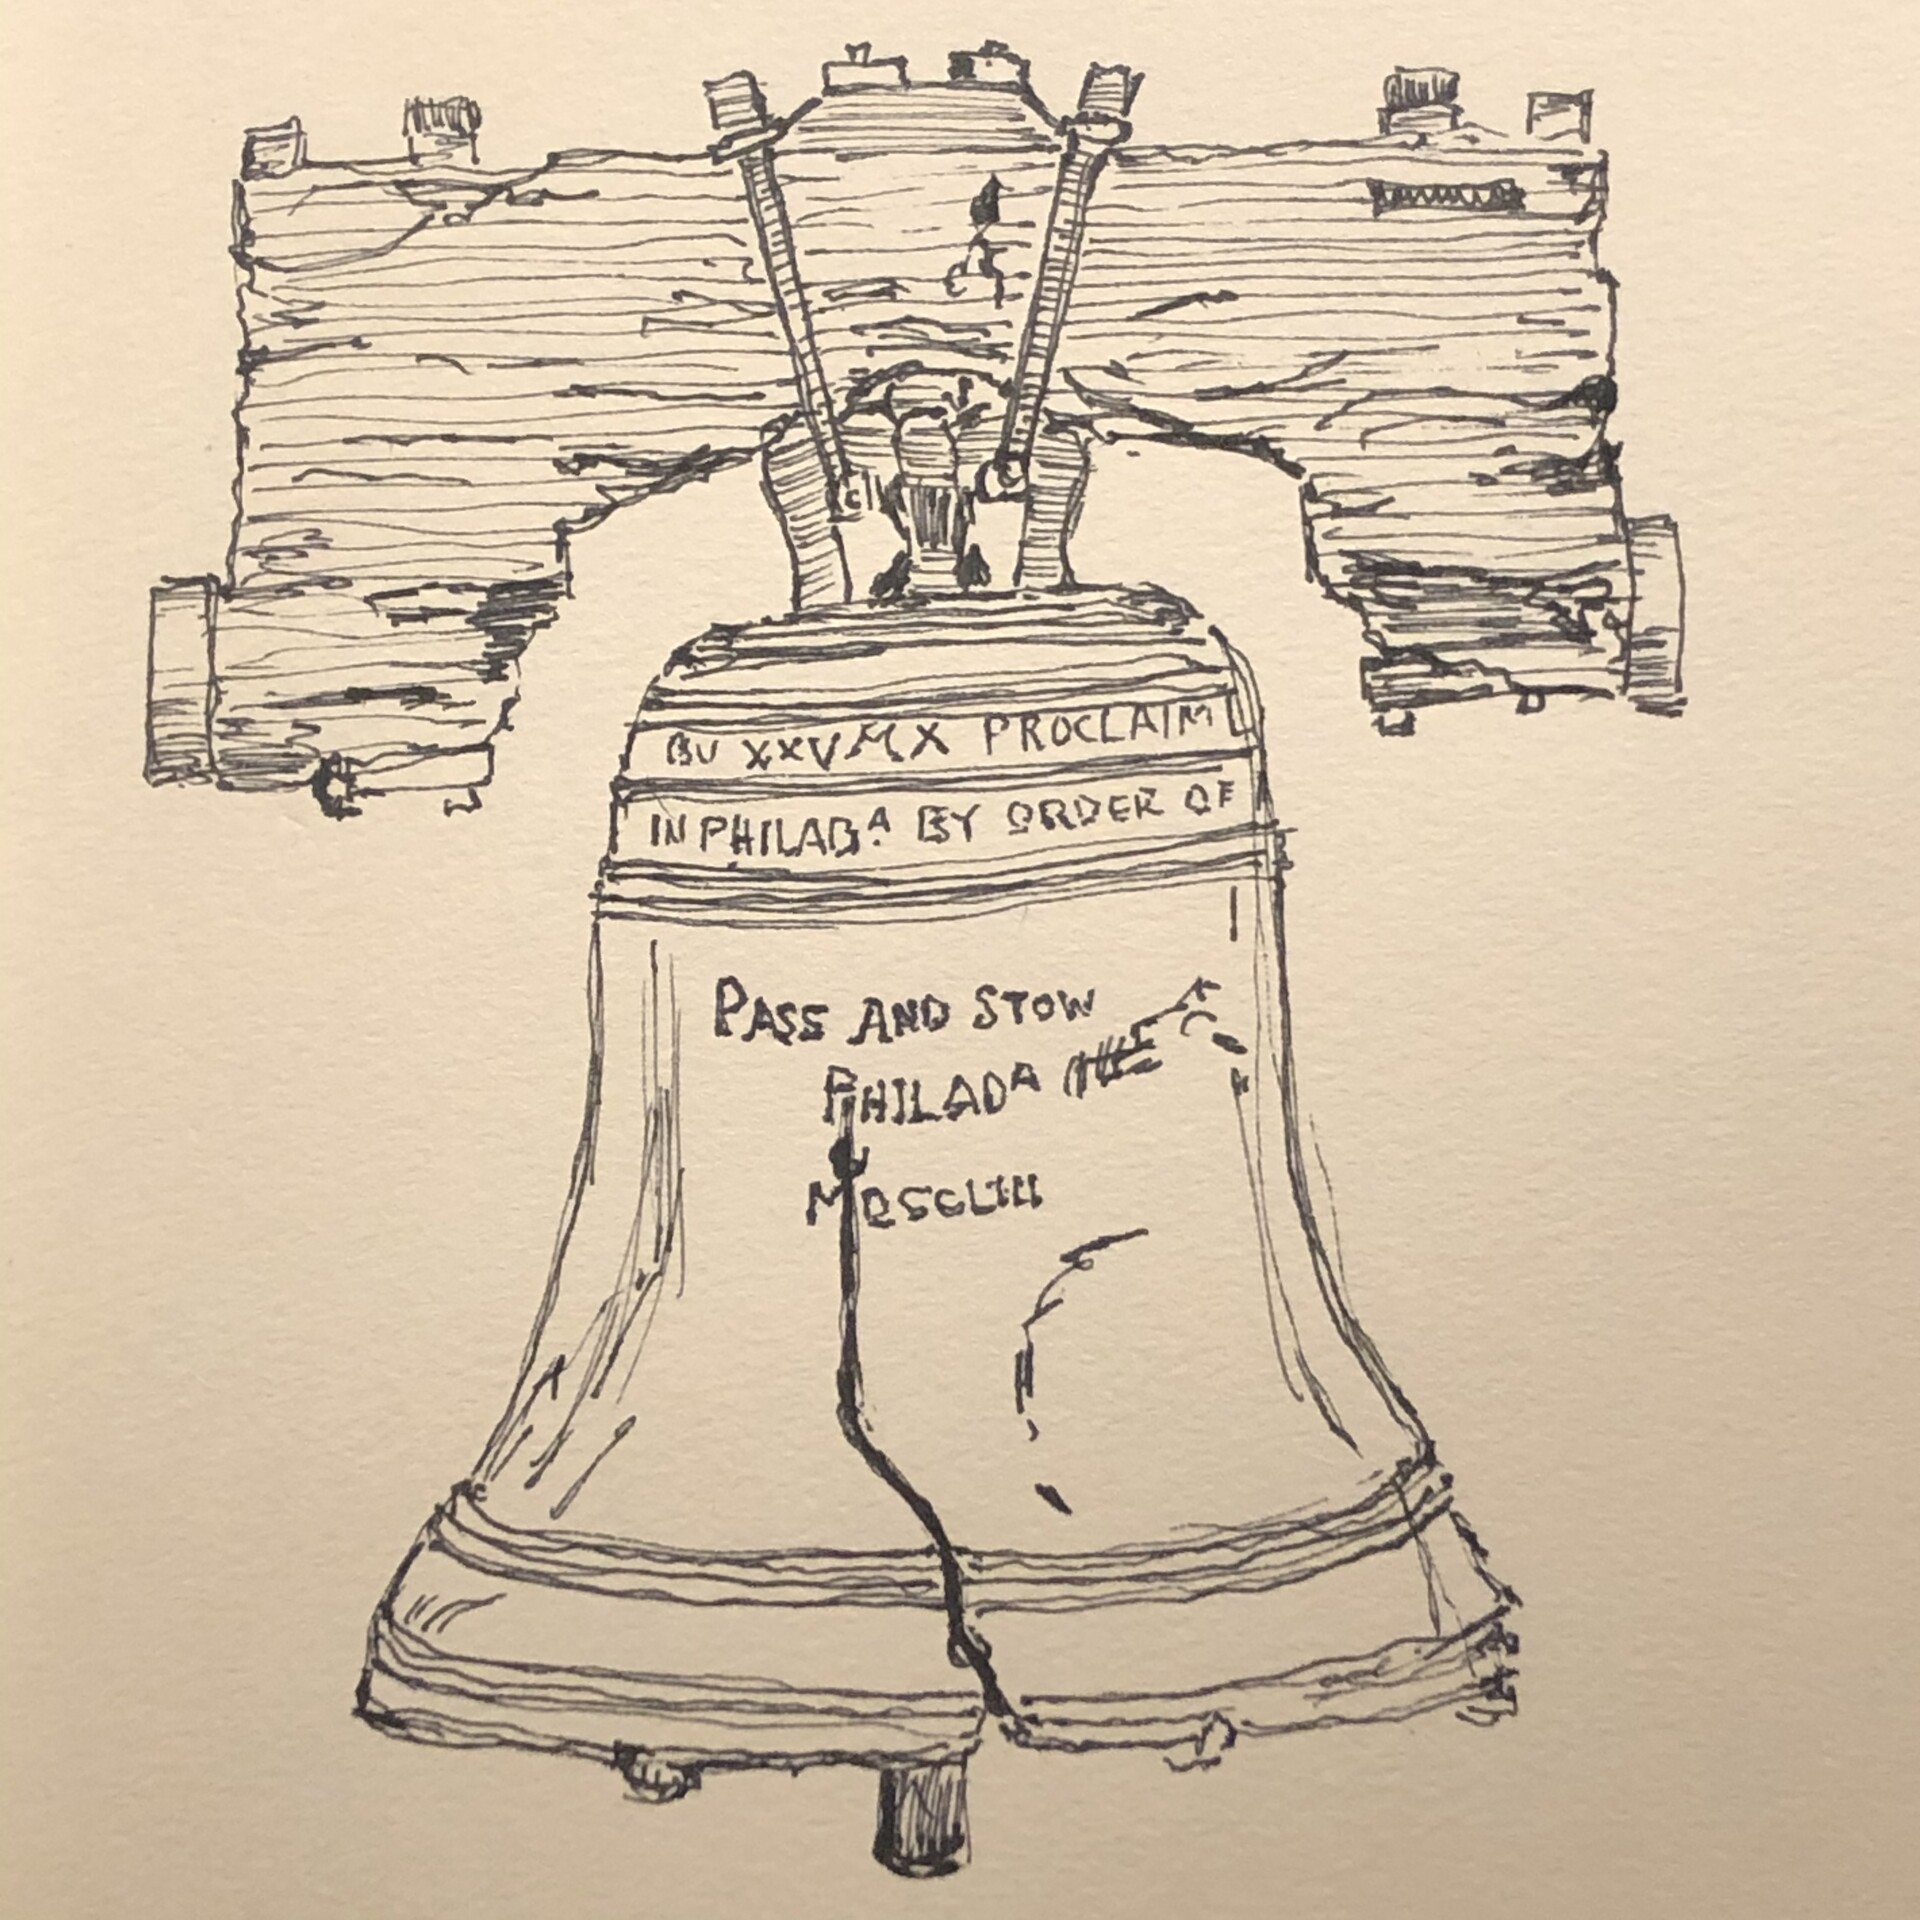 BV XXV M X PROCLAIM L
IN PHILADA BY ORDER OF
PASS AND STOW
PHILADA